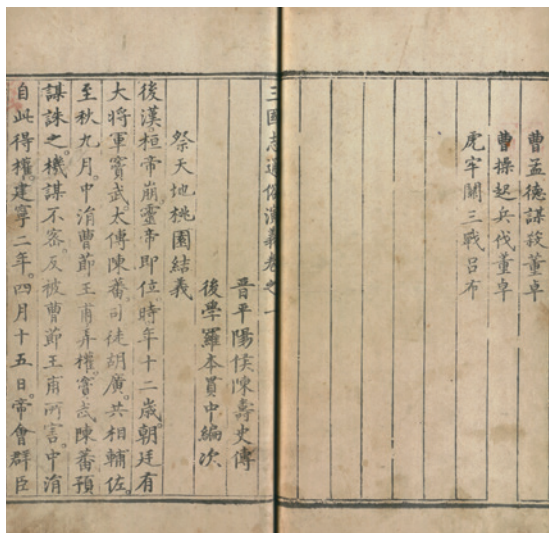 曹孟德謀殺董卓
曹操起兵伐董卓
虎牢關三戰呂布
三國志通俗演義卷之一
晉平陽侯陳壽史傳
後學羅本貫中編次
祭天地桃園結義
後漢桓帝崩。靈帝即位。時年十二歲。朝廷有
大將軍竇武。太傅陳蕃。司徒胡廣。共相輔佐。
至秋九月。中涓曹節王甫弄權。竇武陳蕃預
謀誅之。機謀不密。反被曹節王甫所害。中涓
自此得權。建寧二年。四月十五日。帝會群臣